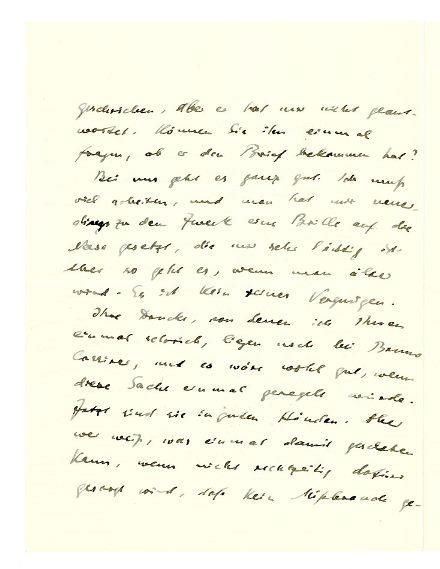 geschrieben. Aber er hat mir nicht geant-
wortet. Können Sie ihn einmal
fragen, ob er den Brief bekommen hat?
Bei uns geht es ganz gut. Ich muß
viel arbeiten, und man hat mir neuer-
dings zu dem Zweck eine Brille auf die
Nase gesetzt, die mir sehr lästig ist.
Aber so geht es, wenn man älter
wird. Es ist kein reines Vergnügen.
Ihre Drucke, von denen ich Ihnen
einmal schrieb, liegen noch bei Bruno
Cassirer, und es wäre wohl gut, wenn
diese Sache einmal geregelt würde.
Jetzt sind sie in guten Händen. Aber
wer weiß, was einmal damit geschehen
kann, wenn nicht rechtzeitig dafür
gesorgt wird, daß kein Mißbrauch ge-